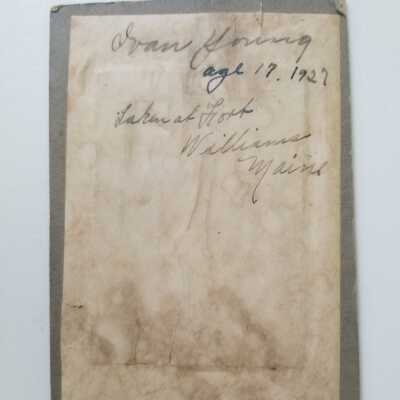 Ivan Young
age 17. 1927
Taken at Fort
Williams
Maine